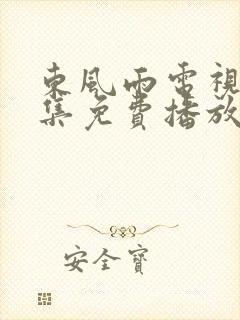 東風雨電視
集免費播放
安全寶